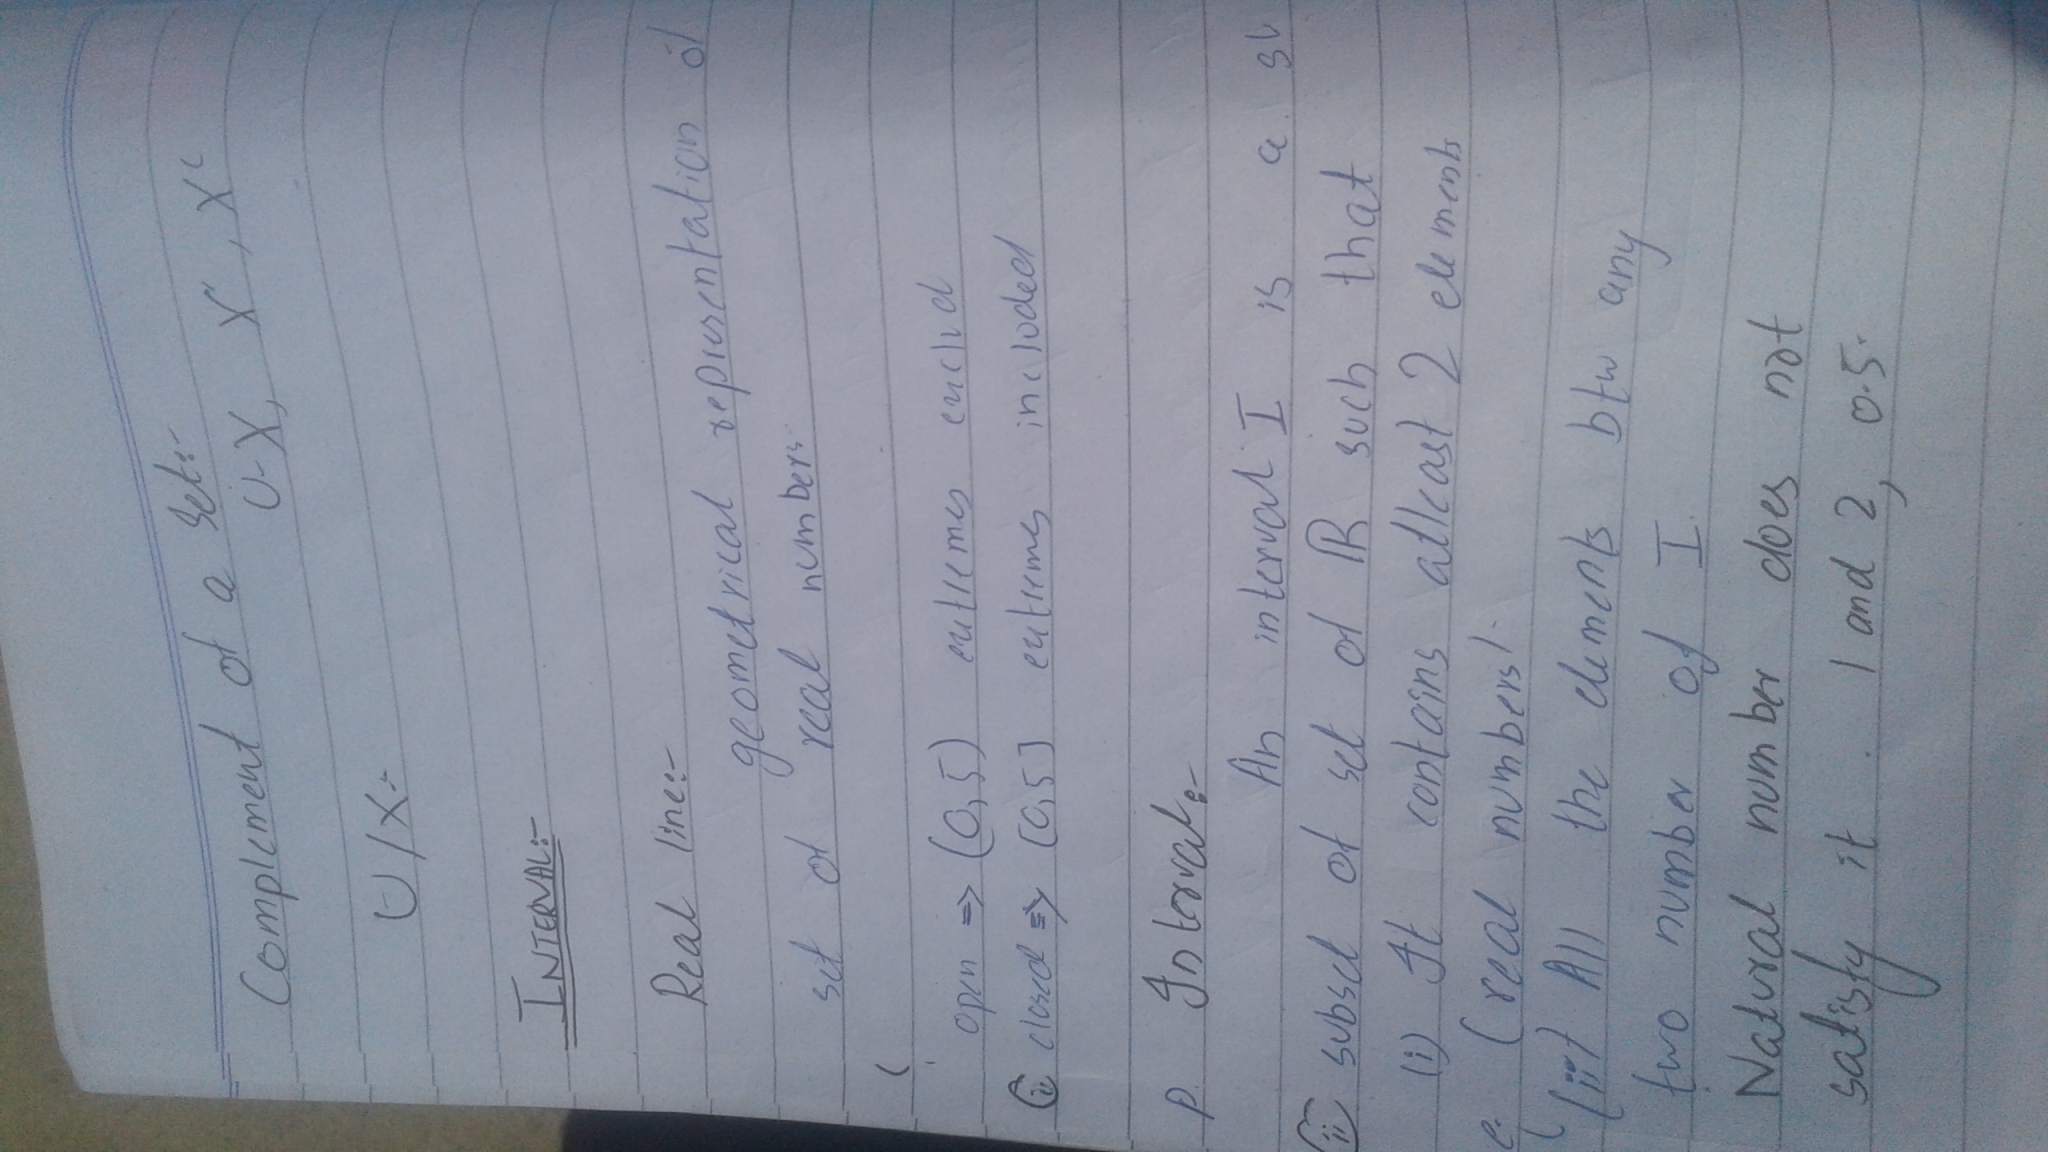 Complement of a Set:-
U-X, X', Xc
U/X:-
INTERVAL:-
Real line:-
geometrical representation of
set of real numbers.
(
open => (0,5) extremes exclud
(ii) closed => [0,5] extremes included
p. Interval:-
An interval I is a su
(ii) subset of set of ℝ such that
(i) It contains atleast 2 elements
e. (real numbers).
(ii) All the elements btw any
two number of I.
Natural number does not
satisfy it. 1 and 2, 0.5.